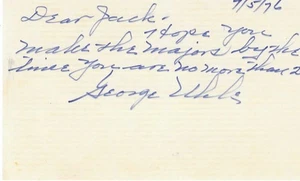 9/5/76
Dear Jack.
Hope you
make the majors by the
time you are no more than 2
George Uhle